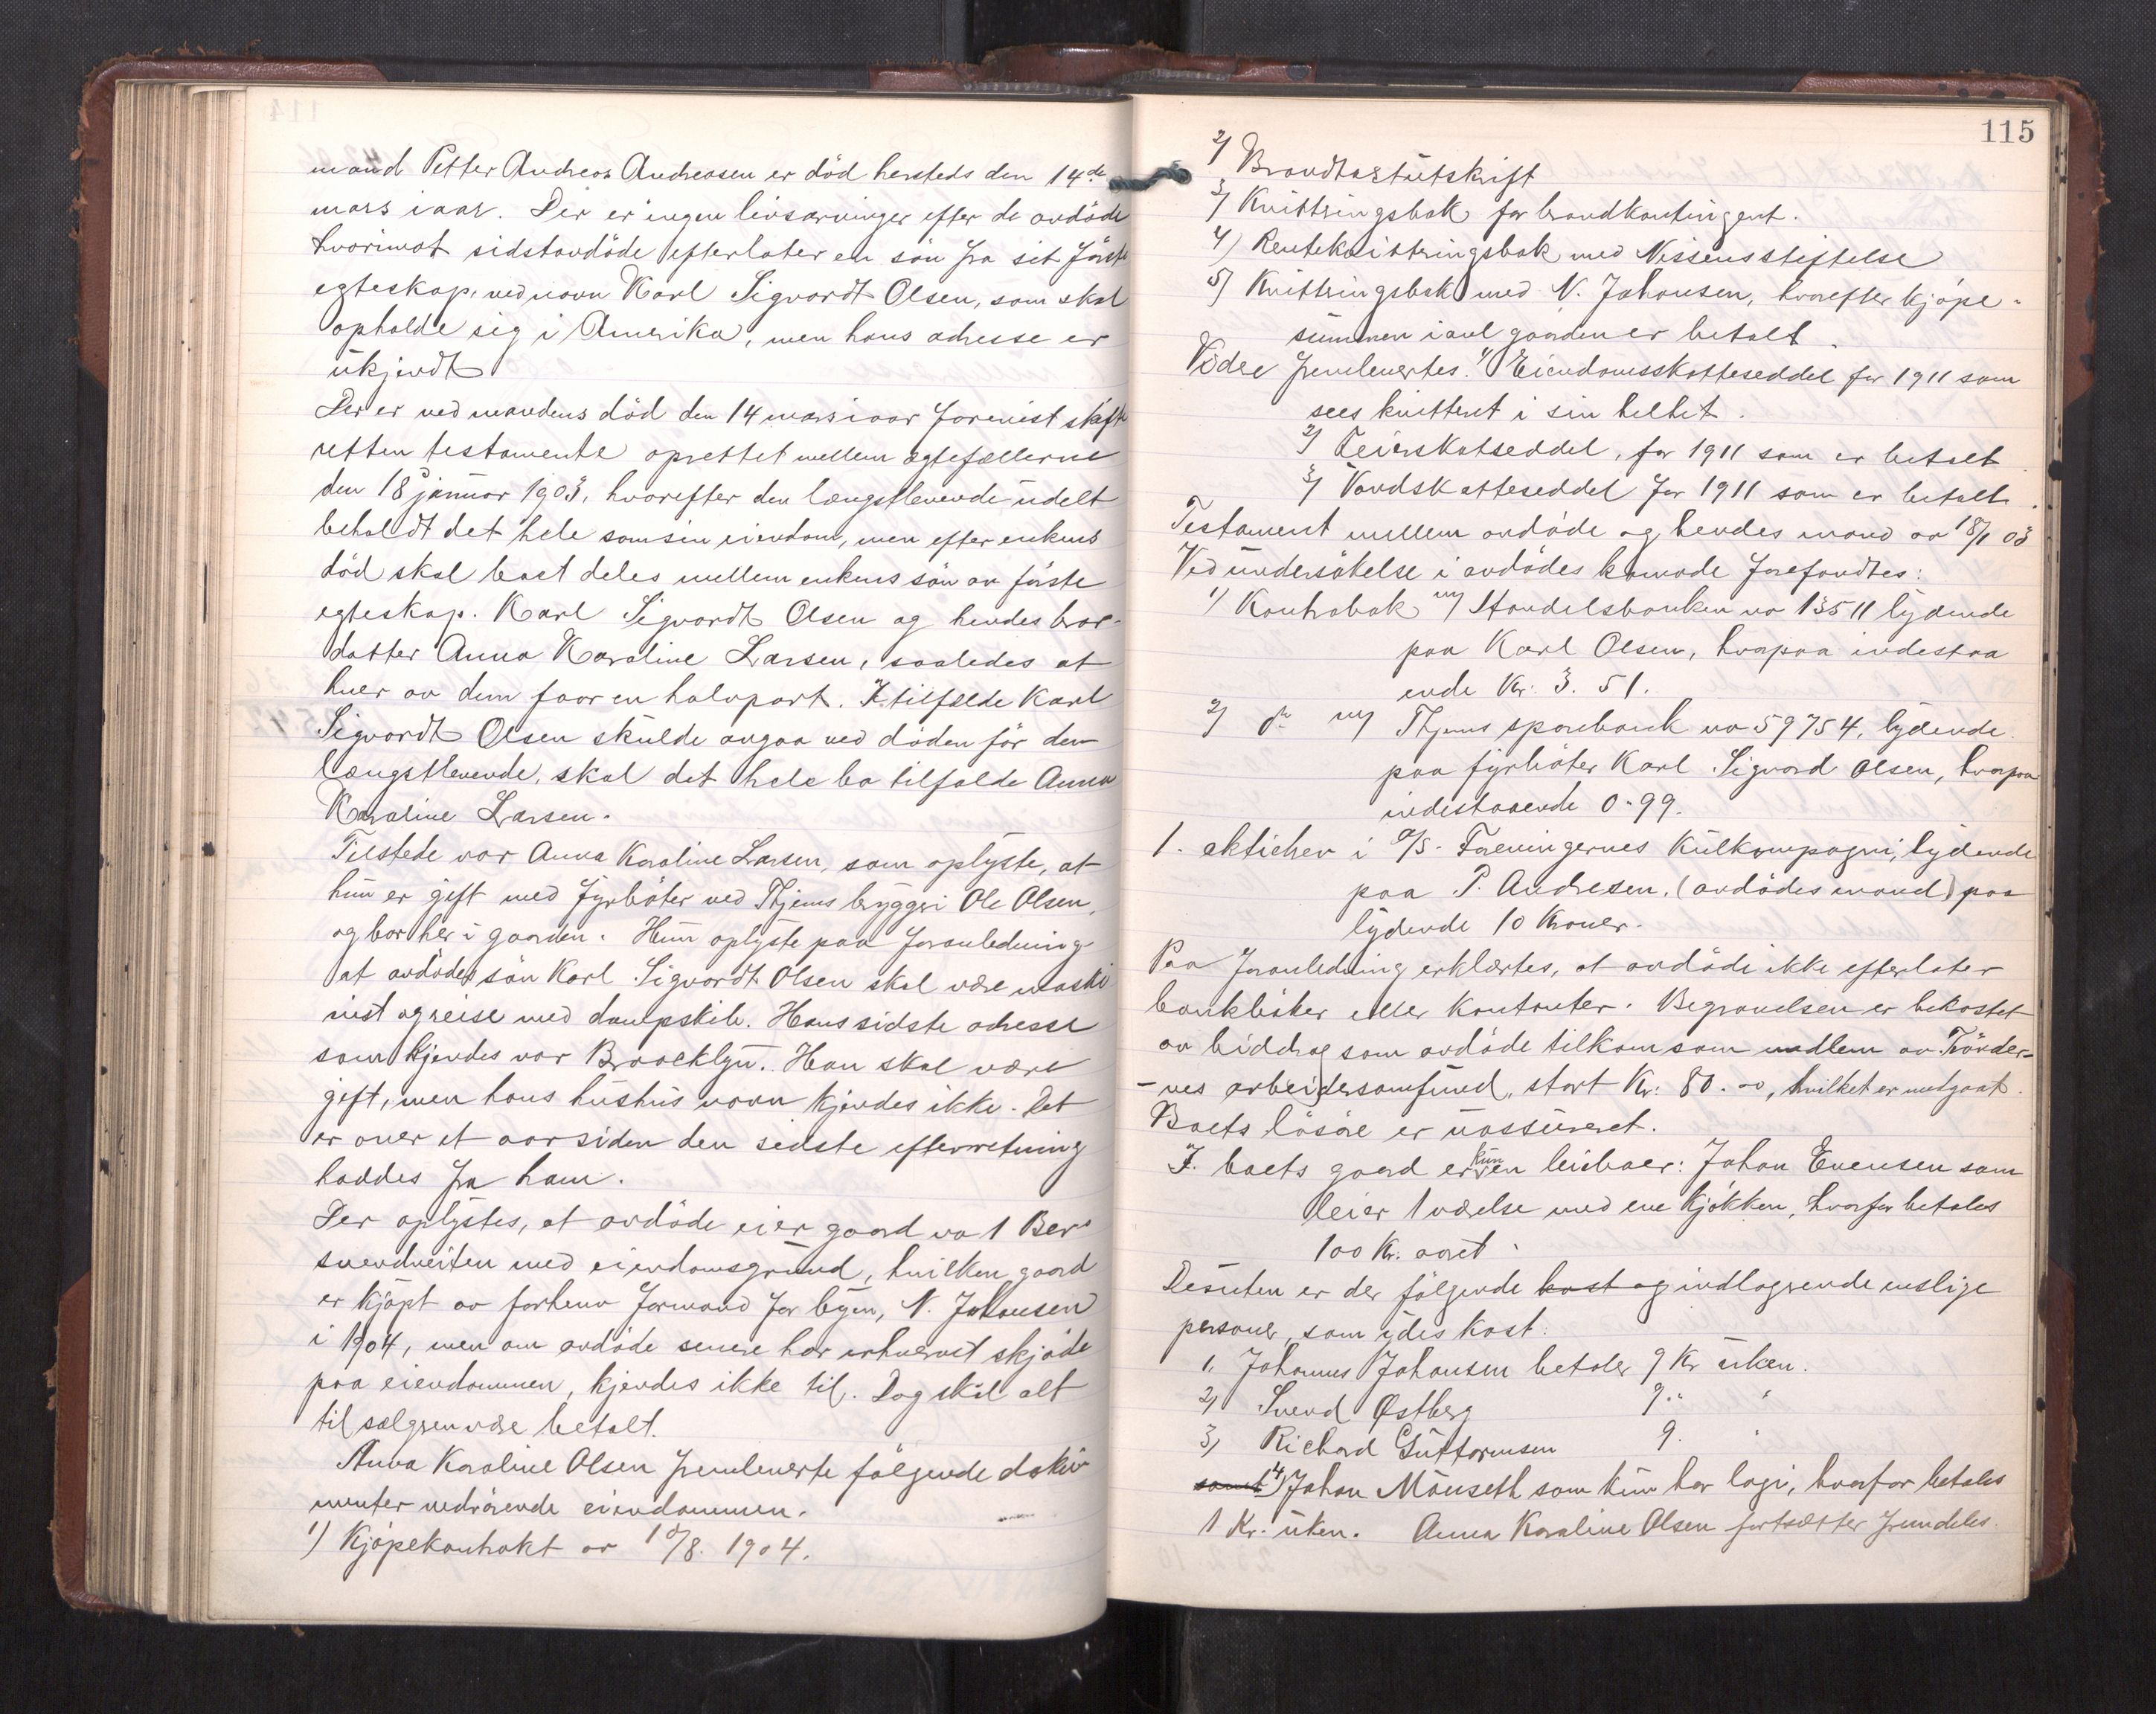 mand Petter Andreas Andreasen er död hersteds den 14de
mars iaar. Der er ingen livsarvinger efter de avdöde
hvorimot sidstavdöde efterlater en sön fra sit förste
egteskap, ved navn Karl Sigvardt Olsen, som skal
opholde sig i Amerika, men hans adresse er
ukjendt
Der er ved mandens död den 14 mars iaar forevist skifte
retten testamente oprettet mellem ægtefællerne
den 18 januar 1903, hvorefter den længstlevende udelt
beholdt det hele som sin eiendom, men efter enkens
död skal boet deles mellem enkens sön av förste
egteskap. Karl Sigvardt Olsen og hendes bror-
datter Anna Karoline Larsen, saaledes at
hver av dem faar en halvpart. I tilfælde Karl
Sigvardt Olsen skulde avgaa ved döden för den
længstlevende, skal det hele bo tilfalde Anna
Karoline Larsen.
Tilstede var Anna Karoline Larsen, som oplyste, at
hun er gift med fyrböter ved Thjems bryggeri Ole Olsen,
og bor her i gaarden. Hun oplyste paa foranledning
at avdödes sön Karl Sigvardt Olsen skal være maski
nist og reise med dampskib. Hans sidste adresse
som kjendes var Broocklyn. Han skal være
gift, men hans hustrus navn kjendes ikke. Det
er over et aar siden den sidste efterretning
haddes fra ham.
Der oplystes, at avdöde eier gaard no 1 Ber-
svendveiten med eiendomsgrund, hvilken gaard
er kjöpt av forhenv formand for byen, N. Johansen
i 1904, men om avdöde senere har erhvervet skjöde
paa eiendommen, kjendes ikke til. Dog skal alt
til sælgeren være betalt.
Anna Karoline Olsen fremleverte fölgende doku
menter vedrörende eiendommen.
1) Kjöpekontrakt av 10/8. 1904.
115
2) Brandtaxtutskrift
3) Kvitteringsbok for brandkontingent.
4) Rentekvitteringsbok med Nissensstiftelse
5) Kvitteringsbok med N. Johansen, hvorefter kjöpe-
summen i avl gaarden er betalt.
Videre fremlevertes: 1) Eiendomsskatteseddel for 1911 som
sees kvittert i sin helhet.
2) Feierskatseddel, for 1911 som er betalt
3) Vandskatteseddel for 1911 som er betalt.
Testament mellem avdöde og hendes mand av 18/1 03
Ved undersökelse i avdödes komode forefandtes:
1) Kontrabok m/ Handelsbanken no 13511 lydende
paa Karl Olsen, hvorpaa indestaa
ende Kr. 3. 51.
2) do m/ Thjems sparebank no 59754, lydende
paa fyrböter Karl Sigvard Olsen, hvorpaa
indestaaende 0-99.
1. aktiebev i A/S. Foreningernes Kulkompagni, lydende
paa P. Andresen, (avdödes mand) paa
lydende 10 Kroner.
Paa foranledning erklærtes, at avdöde ikke efterlater
bankböker eller kontanter. Begravelsen er bekostet
av bidrag som avdöde tilkom som medlem av Trönder-
-nes arbeidersamfund, stort Kr: 80.-, hvilket er medgaat.
Boets lösöre er uassureret.
I boets gaard er kun en leieboer: Johan Evensen som
leier 1 værelse med ene kjökken, hvorfor betales
100 Kr. aaret.
Desuten er der fölgende kost og indlogerende enslige
personer, som ydes kost:
1, Johannes Johansen betaler 9 Kr uken.
2, Svend Østberg 9 " "
3, Richard Guttormsen 9. "
samt 4) Johan Mönseth som kun har logi, hvorfor betales
1 Kr. uken. Anna Karoline Olsen fortsætter fremdeles